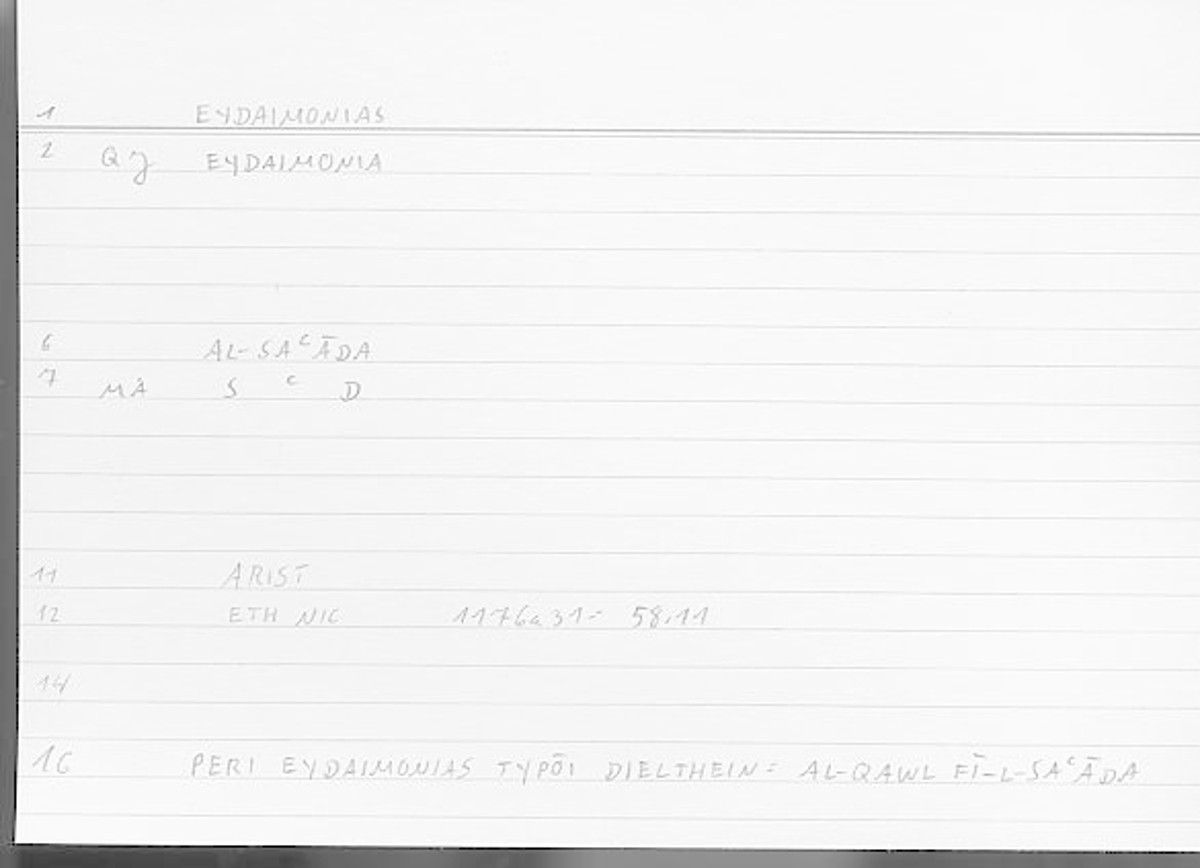 1 EYDAIMONIAS
2 Qy EYDAIMONIA
6 AL-SAᶜĀDA
7 MA S ᶜ D
11 ARIST
12 ETH NIC 1176a31= 58,11
14
16 PERI EYDAIMONIAS TYPŌI DIELTHEIN = AL-QAWL FĪ-L-SAᶜĀDA